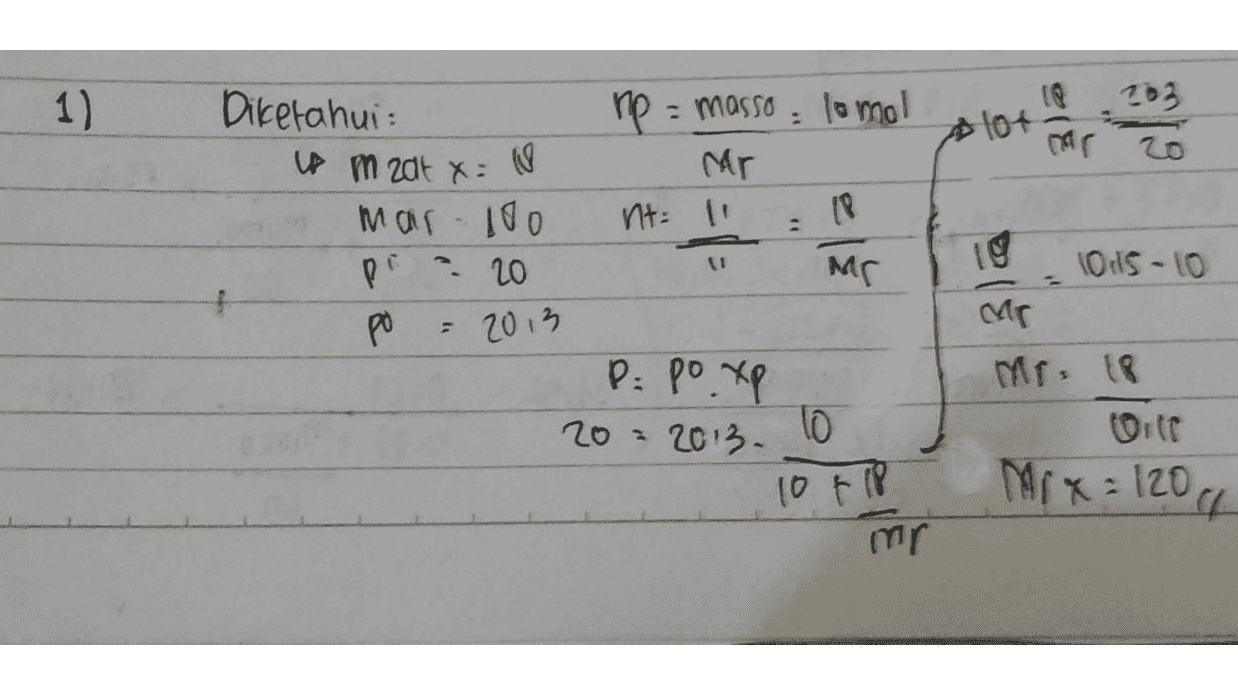 1) Diketahui:
↳ m zat x = 18
mair = 180
p = 20
po = 20,3
np = massa / Mr = 10 mol
nt = " / " = 18 / Mr
P = po . xp
20 = 20,3 . 10 / 10 + 18 / mr
→ 10 + 18 / Mr = 203 / 20
18 / Mr = 10,15 - 10
Mr = 18 / 0,15
Mr x = 120 //